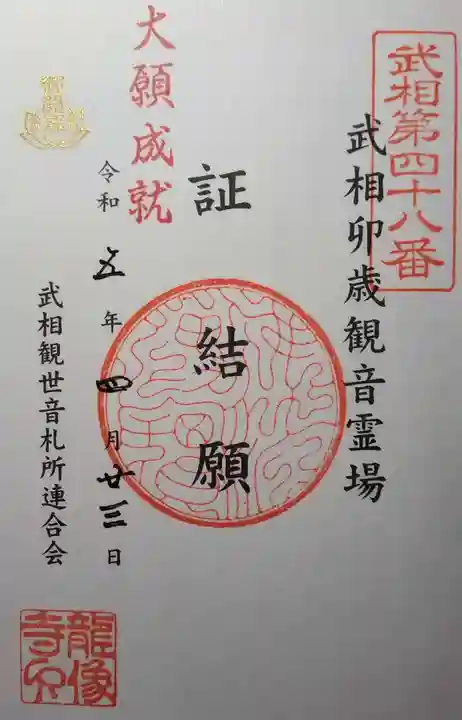 武相第四十八番
武相卯歳観音霊場
証
結願
大願成就
令和五年四月廿三日
武相観世音札所連合会
龍像
寺印